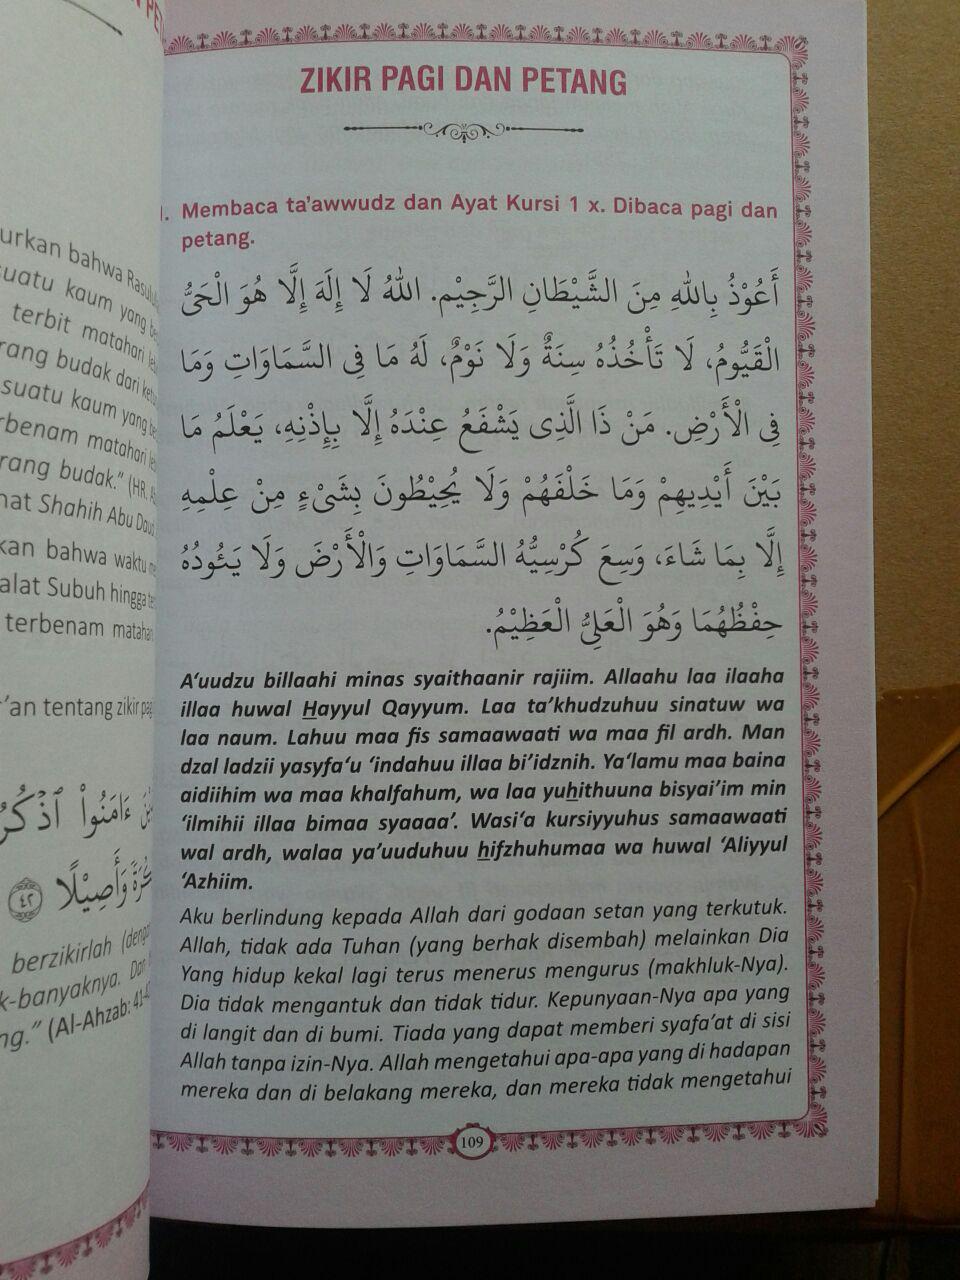 urkan bahwa
suatu kaum yang
terbit matahari
rang budak dari
suatu kaum yang
rbenam matahari
rang budak." (HR.
hat Shahih Abu Daud
kan bahwa waktu
alat Subuh hingga
terbenam
r'an tentang zikir
ءَامَنُوا۟ ٱذْكُرُ
وَأَصِيْلًا ٤٢
berzikirlah
k-banyaknya. Dan
ng." (Al-Ahzab: 41-4
ZIKIR PAGI DAN PETANG
1. Membaca ta'awwudz dan Ayat Kursi 1 x. Dibaca pagi dan
petang.
أَعُوْذُ بِاللهِ مِنَ الشَّيْطَانِ الرَّجِيْمِ. اللهُ لَا إِلَهَ إِلَّا هُوَ الْحَيُّ
الْقَيُّومُ، لَا تَأْخُذُهُ سِنَةٌ وَلَا نَوْمٌ، لَهُ مَا فِى السَّمَاوَاتِ وَمَا
فِى الْأَرْضِ. مَنْ ذَا الَّذِى يَشْفَعُ عِنْدَهُ إِلَّا بِإِذْنِهِ، يَعْلَمُ مَا
بَيْنَ أَيْدِيهِمْ وَمَا خَلْفَهُمْ وَلَا يُحِيْطُونَ بِشَىْءٍ مِنْ عِلْمِهِ
إِلَّا بِمَا شَاءَ، وَسِعَ كُرْسِيُّهُ السَّمَاوَاتِ وَالْأَرْضَ وَلَا يَئُودُهُ
حِفْظُهُمَا وَهُوَ الْعَلِيُّ الْعَظِيْمُ.
A'uudzu billaahi minas syaithaanir rajiim. Allaahu laa ilaaha
illaa huwal Hayyul Qayyum. Laa ta'khudzuhuu sinatuw wa
laa naum. Lahuu maa fis samaawaati wa maa fil ardh. Man
dzal ladzii yasyfa'u 'indahuu illaa bi'idznih. Ya'lamu maa baina
aidiihim wa maa khalfahum, wa laa yuhithuuna bisyai'im min
'ilmihii illaa bimaa syaaaa'. Wasi'a kursiyyuhus samaawaati
wal ardh, walaa ya'uuduhuu hifzhuhumaa wa huwal 'Aliyyul
'Azhiim.
Aku berlindung kepada Allah dari godaan setan yang terkutuk.
Allah, tidak ada Tuhan (yang berhak disembah) melainkan Dia
Yang hidup kekal lagi terus menerus mengurus (makhluk-Nya).
Dia tidak mengantuk dan tidak tidur. Kepunyaan-Nya apa yang
di langit dan di bumi. Tiada yang dapat memberi syafa'at di sisi
Allah tanpa izin-Nya. Allah mengetahui apa-apa yang di hadapan
mereka dan di belakang mereka, dan mereka tidak mengetahui
109